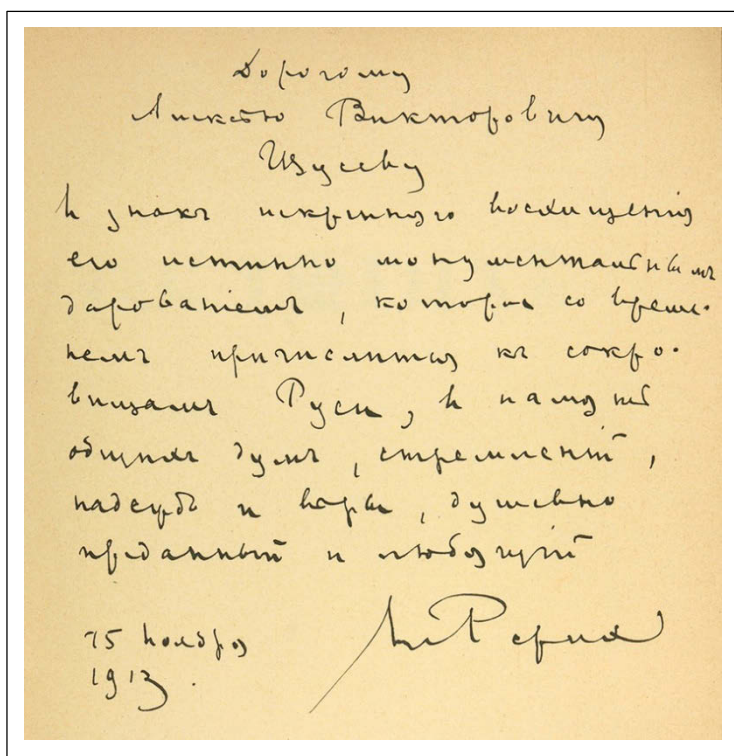 Дорогому
Алексѣю Викторовичу
Щусеву
въ знакъ искренняго восхищенія
его истинно монументальнымъ
дарованіемъ, которое со време-
немъ причислится къ сокро-
вищамъ Руси, въ память
общихъ думъ, стремленій,
надеждъ и вѣры, душевно
преданный и любящій
15 ноября
1913.
Н Рерих